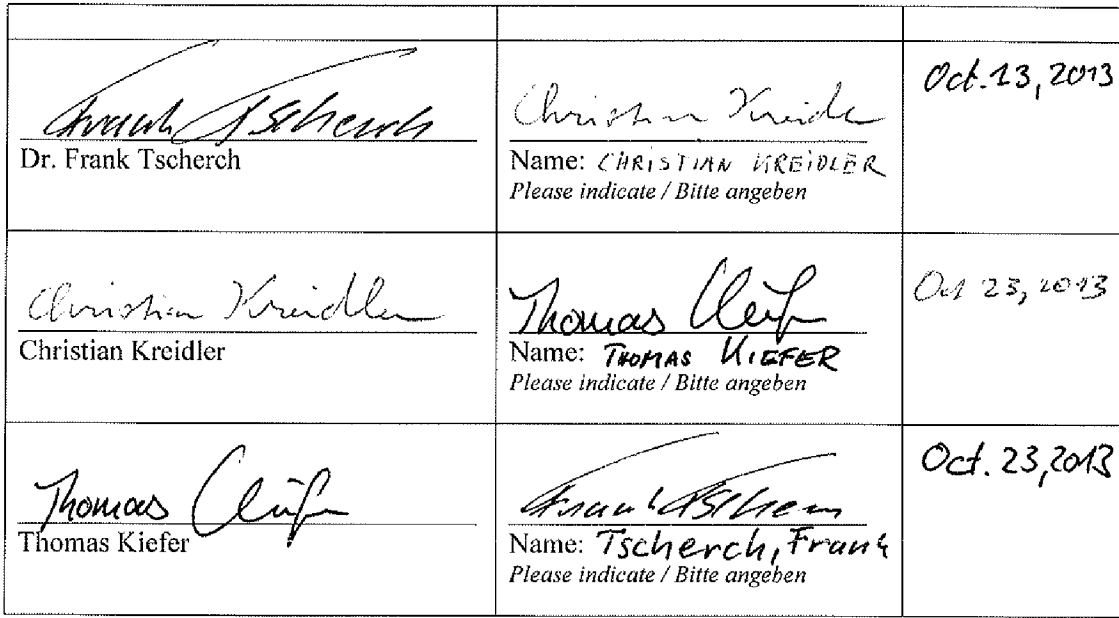 Frank Tscherch
Dr. Frank Tscherch
Christian Kreidler
Name: CHRISTIAN KREIDLER
Please indicate / Bitte angeben
Oct. 13, 2013
Christian Kreidler
Christian Kreidler
Thomas Kiefer
Name: THOMAS KIEFER
Please indicate / Bitte angeben
Oct 23, 2013
Thomas Kiefer
Thomas Kiefer
Frank Tscherch
Name: Tscherch, Frank
Please indicate / Bitte angeben
Oct. 23, 2013